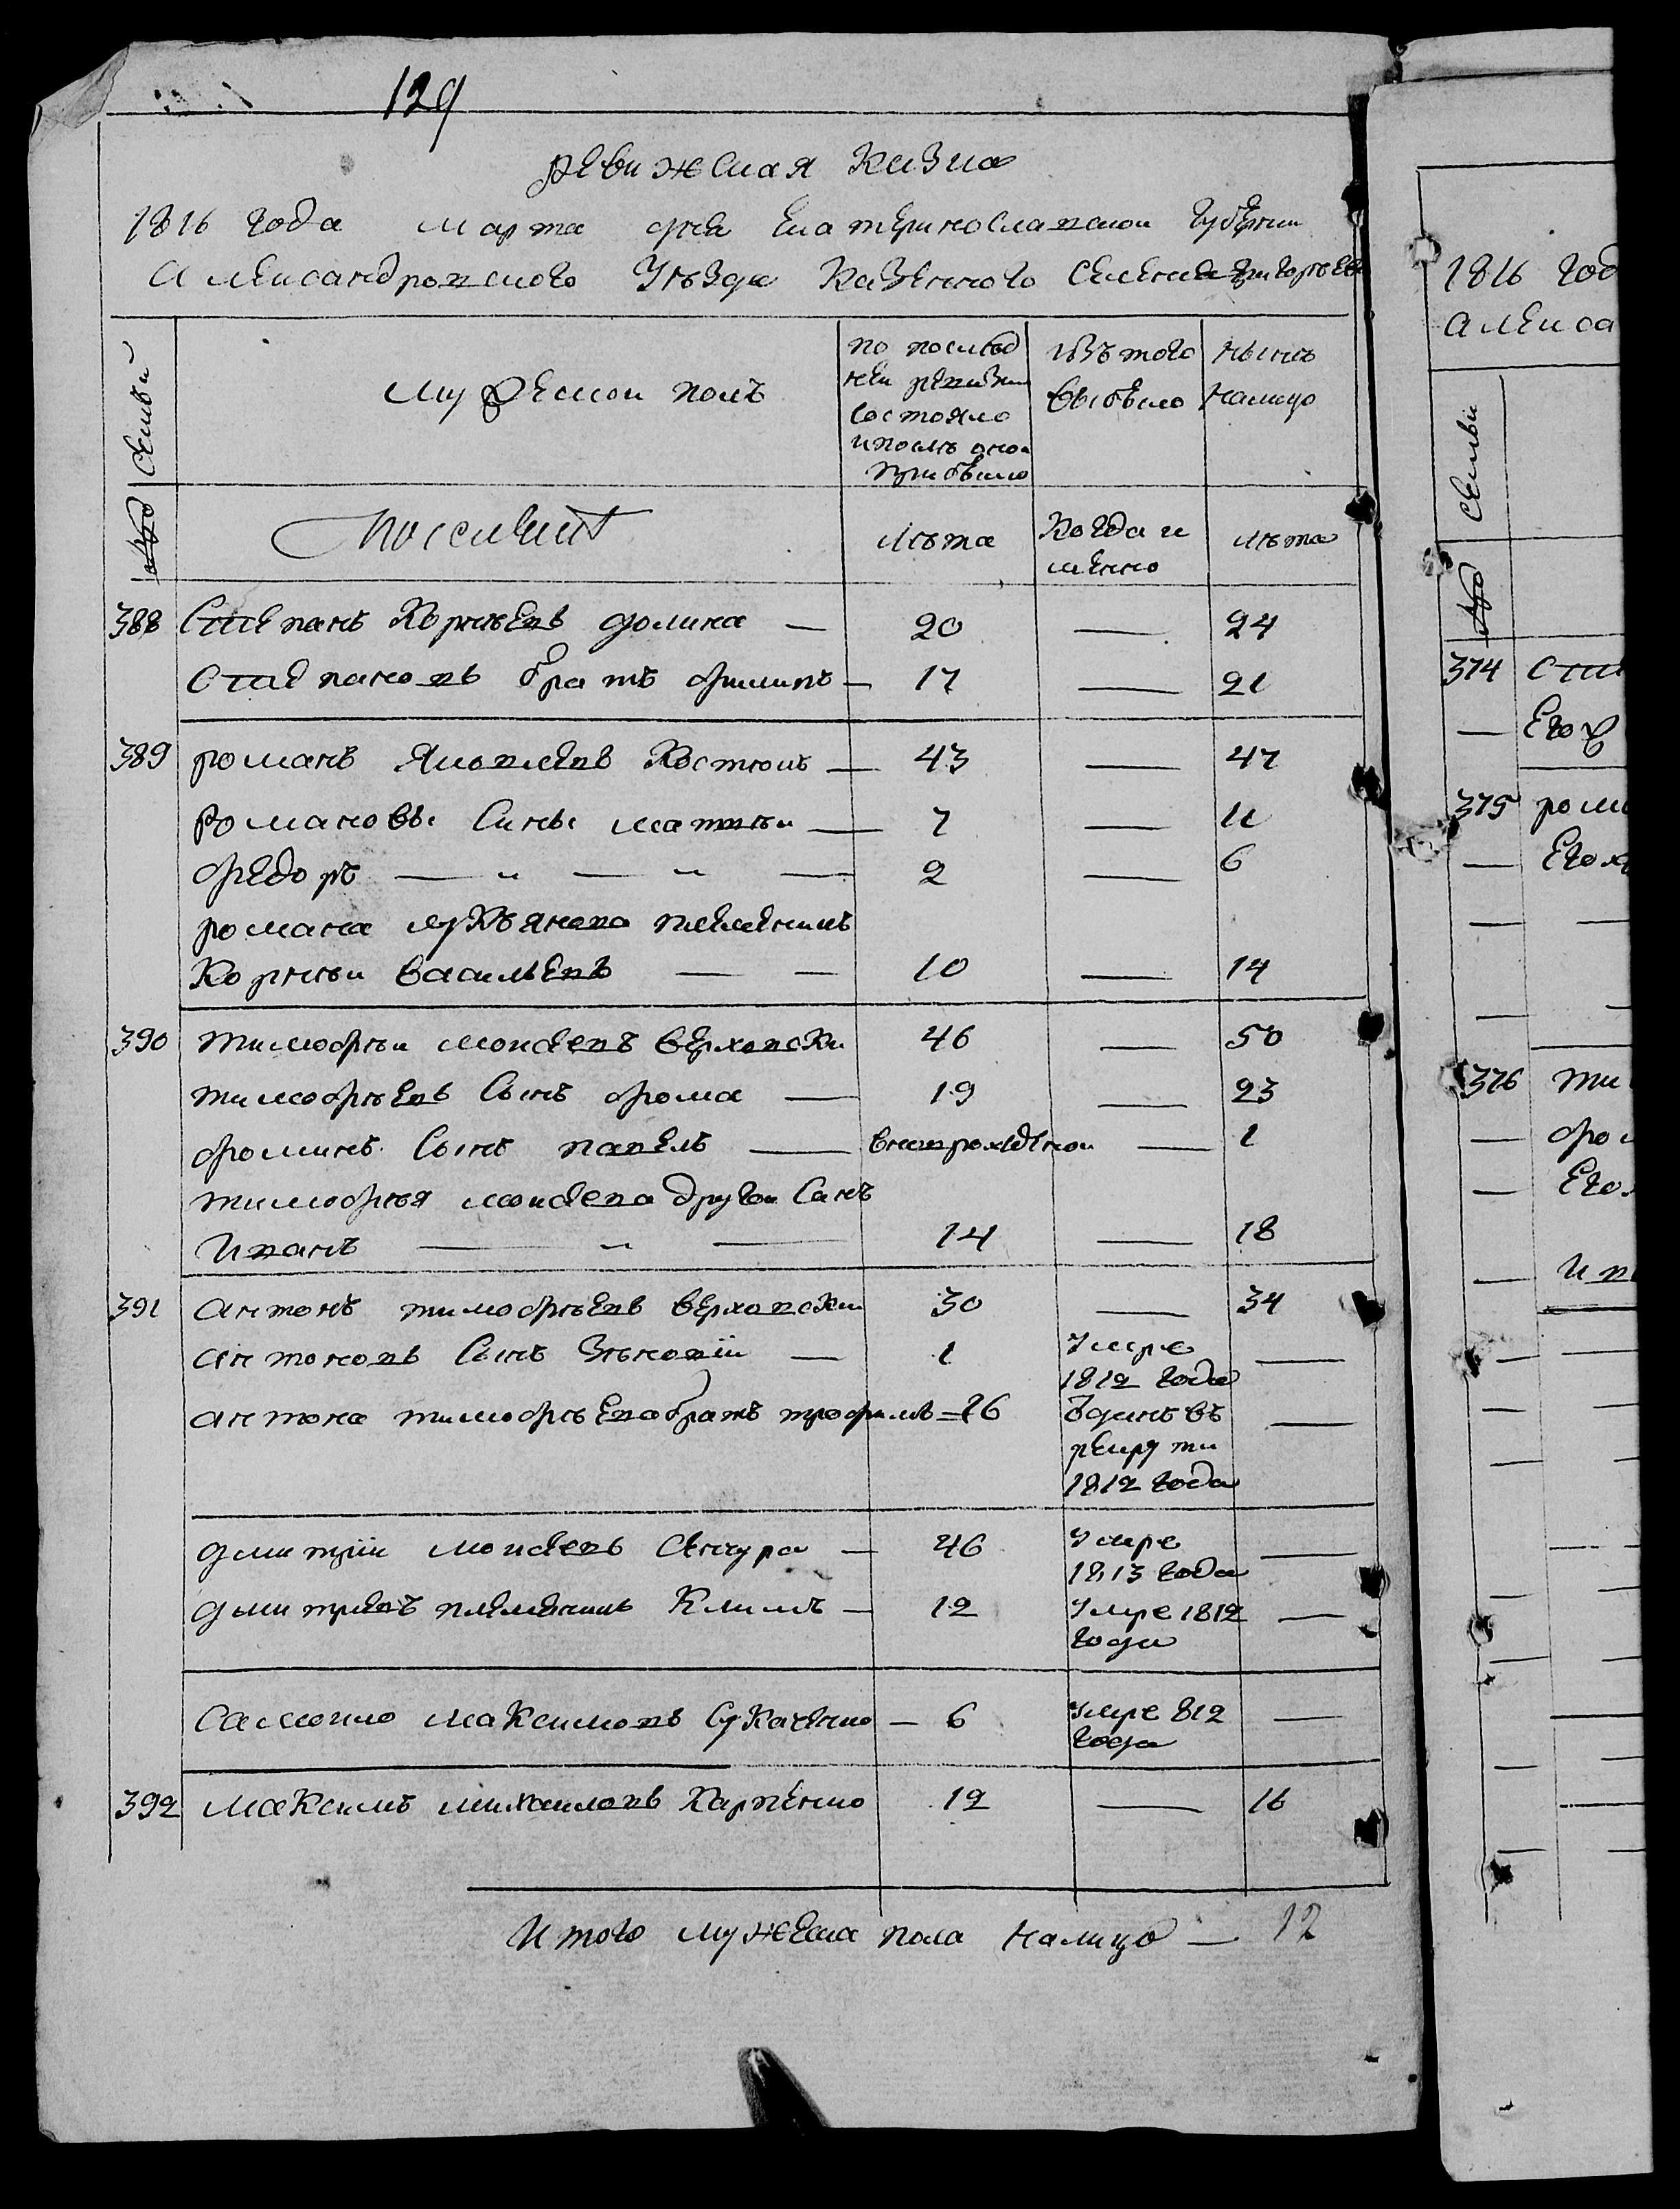 129
ревижская казна
1816 года марта дня Екатеринославской губернии
Александровского Уезда Казенного селения Григорьев
семьи
мужескои полъ
по послед
неи ревизии
состояло
и после оной
прибыло
изъ того
выбыло
ныне
налицо
лета
когда и
менно
лета
388 Степанъ Корнеевъ долина — 20 — 24
Степановъ братъ Филипъ — 17 — 21
389 романъ Яковлевъ Костюкъ — 43 — 47
Романовы Сины матвеи — 7 — 11
Федоръ — " — " — 2 — 6
романа лукъянова племеникъ
Корнеи Васильевъ — — 10 — 14
390 тимофеи моисеевъ верховски 46 — 50
тимофеевъ Сынъ Фома — 19 — 23
Фоминъ Сынъ павелъ — вновьрожденои — 1
тимофея моисеева другои Синъ
Иванъ — " — 14 — 18
391 антонъ тимофеевъ верховски 30 — 34
антоновъ Сынъ Зеновіи — 1 Умре —
1812 года
антона тимофеева братъ трофимъ = 26 Отданъ въ —
рекрути
1812 года
дмитріи моисеевъ Сенчура — 46 Умре —
1813 года
дмитриевъ племеникъ Климъ — 12 Умре 1812 —
года
Самоило максимовъ Сукаченко — 6 Умре 812 —
года
392 максимъ михаиловъ Карпенко 12 — 16
Итого мужеска пола налицо — 12
1816 год
Алекса
семьи
374 Сте
Его
375 рома
Его
376 ти
Фом
Его
Ив